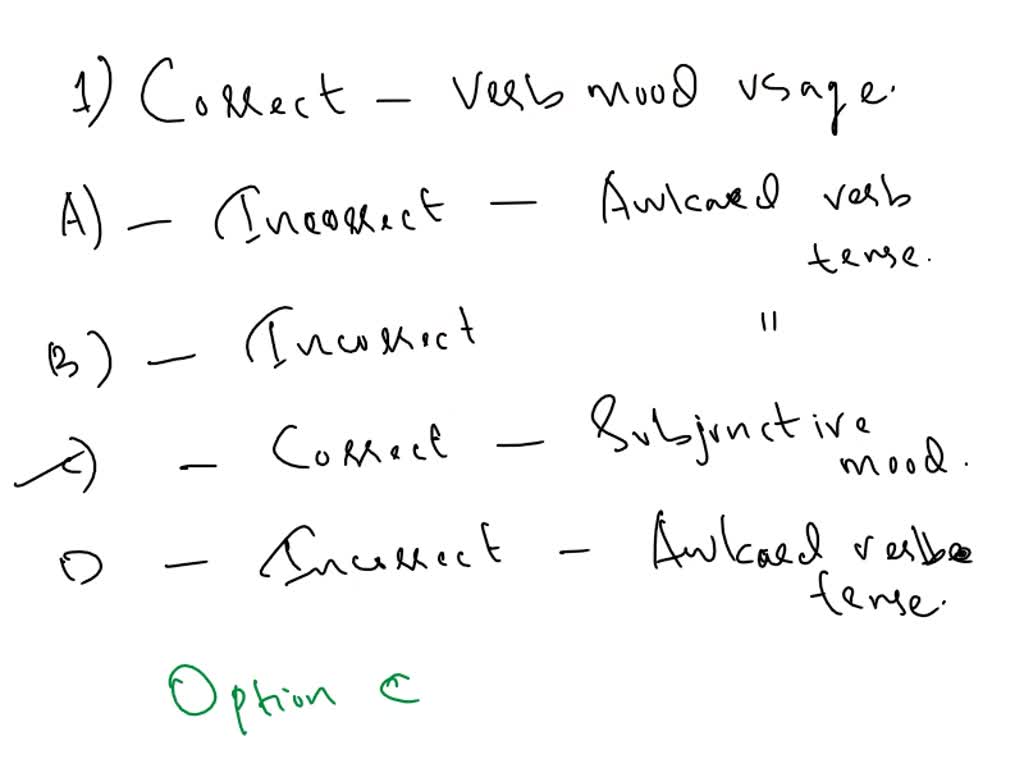 1) Correct - Verb mood usage.
A) - Incorrect - Awkared verb
tense.
B) - Incorrect "
C) - Correct - Subjunctive
mood.
D - Incorrect - Awkared verbe
tense.
Option C